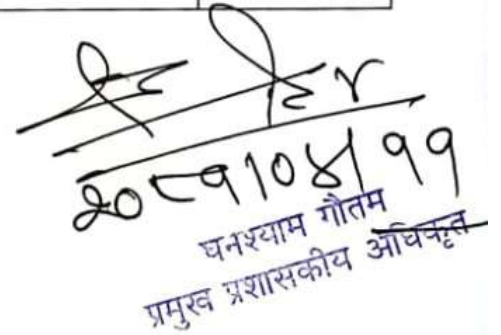 २०८१/०४/११
घनश्याम गौतम
प्रमुख प्रशासकीय अधिकृत